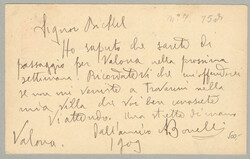 Signor Nickel
Ho saputo che sarete di
passaggio per Valona nella prossima
settimana. Ricordatevi che mi offendere
se non mi venite a trovarmi nella
mia villa che voi ben conoscete
Vi attendo. Una stretta di mano
Dall'amico Bonelli
Valona. 1909